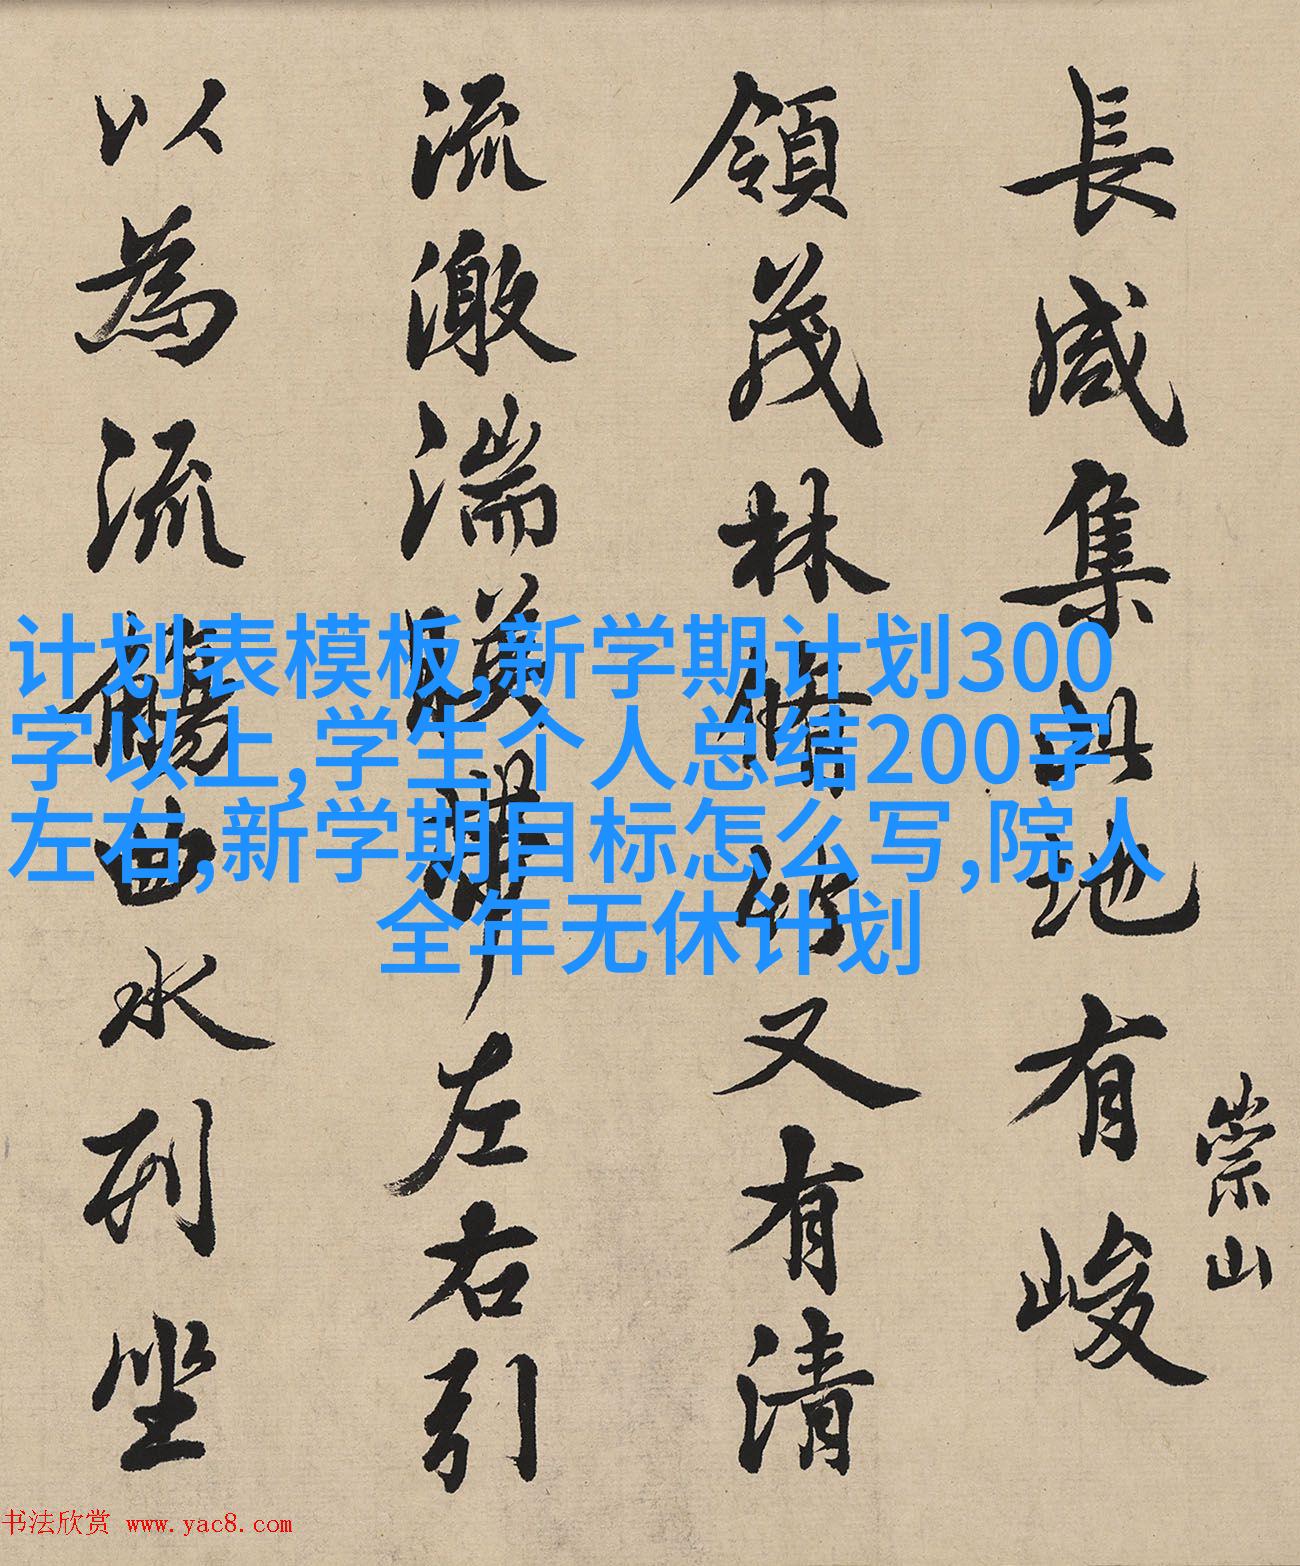 長咸集此地有峻
崇山
領茂林脩竹又有清
流激湍暎帶左右引
以為流觴曲水列坐
计划表模板,新学期计划300
字以上,学生个人总结200字
左右,新学期目标怎么写,院人
全年无休计划
书法欣赏 www.yac8.com